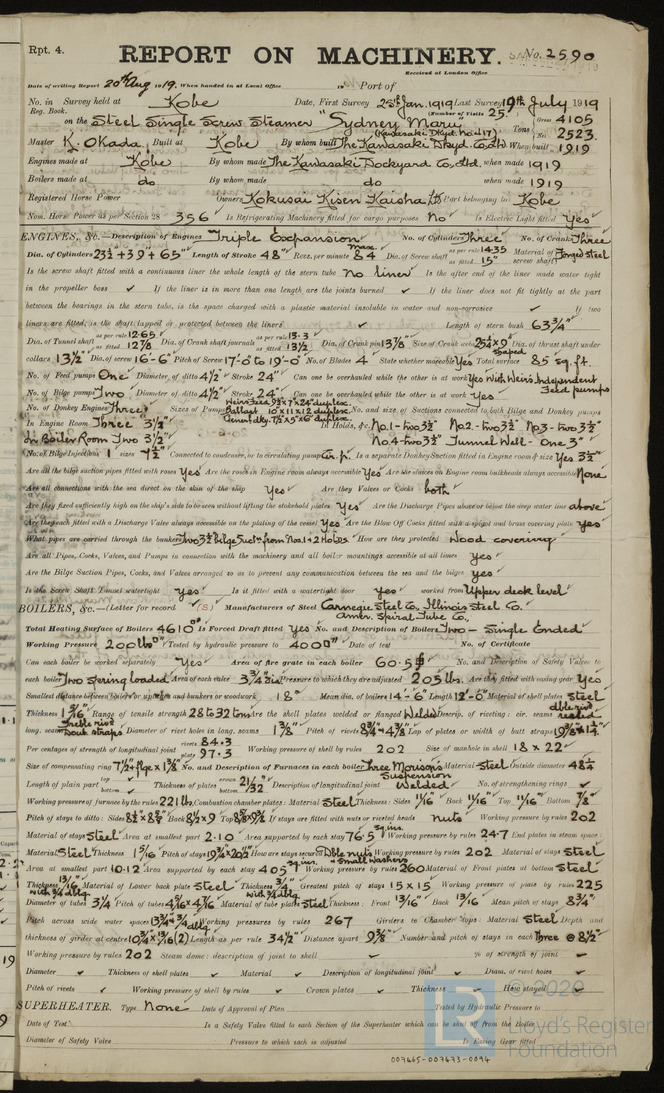 Rpt. 4.
REPORT ON MACHINERY.
No. 2590
Received at London Office
Date of writing Report 20th Aug 1919. When handed in at Local Office 19 Port of
No. in Survey held at Kobe Date, First Survey 28th Jan. 1919 Last Survey 19th July 1919
Reg. Book. (Number of Visits 25
on the Steel Single Screw Steamer "Sydney Maru" Tons Gross 4105
(Kawasaki Dkyd. No. 417) Net 2523
Master K. Okada Built at Kobe By whom built The Kawasaki Dkyd. Co., Ltd. When built 1919
Engines made at Kobe By whom made The Kawasaki Dockyard Co., Ltd. when made 1919
Boilers made at do By whom made do when made 1919
Registered Horse Power Owners Kokusai Kisen Kaisha Ltd Port belonging to Kobe
Nom. Horse Power as per Section 28 356 Is Refrigerating Machinery fitted for cargo purposes No Is Electric Light fitted Yes
ENGINES, &c.—Description of Engines Triple Expansion No. of Cylinders Three No. of Cranks Three
Dia. of Cylinders 23½ + 39 + 65" Length of Stroke 48" Revs. per minute Max. 84 Dia. of Screw shaft as per rule 14.35 as fitted 15" Material of screw shaft Forged steel
Is the screw shaft fitted with a continuous liner the whole length of the stern tube No liner Is the after end of the liner made water tight
in the propeller boss ✓ If the liner is in more than one length are the joints burned ✓ If the liner does not fit tightly at the part
between the bearings in the stern tube, is the space charged with a plastic material insoluble in water and non-corrosive ✓ If two
liners are fitted, is the shaft lapped or protected between the liners ✓ Length of stern bush 63¾"
Dia. of Tunnel shaft as per rule 12.65 as fitted 12⅞ Dia. of Crank shaft journals as per rule 13.3 as fitted 13½ Dia. of Crank pin 13⅞ Size of Crank webs 25½ x 9 shaped Dia. of thrust shaft under
collars 13½" Dia. of screw 16-6" Pitch of Screw 17'-0" to 19'-0" No. of Blades 4 State whether moveable Yes Total surface 85 sq. ft.
No. of Feed pumps One Diameter of ditto 4½" Stroke 24" Can one be overhauled while the other is at work Yes With Weir's Independent Feed pumps
No. of Bilge pumps Two Diameter of ditto 4½" Stroke 24" Can one be overhauled while the other is at work Yes
No. of Donkey Engines Three Sizes of Pumps Weirs feed 9½ x 7 x 24" duplex. Ballast 10 x 11 x 12 duplex. Gen. dky. 7½ x 5 x 6" duplex No. and size of Suctions connected to both Bilge and Donkey pumps
In Engine Room Three 3½" In Holds, &c. No. 1 - two 3½" No. 2 - two 3½" No. 3 - two 3½"
In Boiler Room Two 3½" No. 4 - two 3½" Tunnel Well - One 3"
No. of Bilge Injections 1 sizes 7½" Connected to condenser, or to circulating pump Cir. p. Is a separate Donkey Suction fitted in Engine room & size Yes 3½"
Are all the bilge suction pipes fitted with roses Yes Are the roses in Engine room always accessible Yes Are the sluices on Engine room bulkheads always accessible None
Are all connections with the sea direct on the skin of the ship Yes Are they Valves or Cocks both
Are they fixed sufficiently high on the ship's side to be seen without lifting the stokehold plates Yes Are the Discharge Pipes above or below the deep water line above
Are they each fitted with a Discharge Valve always accessible on the plating of the vessel Yes Are the Blow Off Cocks fitted with a spigot and brass covering plate yes
What pipes are carried through the bunkers Two 3½ bilge suct'ns from No. 1 + 2 Holds How are they protected Wood covering
Are all Pipes, Cocks, Valves, and Pumps in connection with the machinery and all boiler mountings accessible at all times yes
Are the Bilge Suction Pipes, Cocks, and Valves arranged so as to prevent any communication between the sea and the bilges yes
Is the Screw Shaft Tunnel watertight yes Is it fitted with a watertight door yes worked from Upper deck level
BOILERS, &c.—(Letter for record (S) Manufacturers of Steel Carnegie Steel Co., Illinois Steel Co. Amer. Spiral Tube Co.,
Total Heating Surface of Boilers 4610 Is Forced Draft fitted yes No. and Description of Boilers Two - Single Ended
Working Pressure 200 lbs Tested by hydraulic pressure to 400 Date of test No. of Certificate
Can each boiler be worked separately Yes Area of fire grate in each boiler 60.5 No. and Description of Safety Valves to
each boiler Two spring loaded Area of each valve 3¾ dia Pressure to which they are adjusted 205 lbs. Are they fitted with easing gear Yes
Smallest distance between boilers or uptakes and bunkers or woodwork 18" Mean dia. of boilers 14'-6" Length 12'-0" Material of shell plates Steel
Thickness 1 3/16" Range of tensile strength 28 to 32 tons Are the shell plates welded or flanged Welded Descrip. of riveting: cir. seams dble rivt seated
long. seams Treble rivt Doub. straps Diameter of rivet holes in long. seams 1⅜" Pitch of rivets 8¾" - 4⅜ Lap of plates or width of butt straps 19⅞ x 1¼"
Per centages of strength of longitudinal joint rivets 84.3 plate 97.3 Working pressure of shell by rules 202 Size of manhole in shell 18 x 22"
Size of compensating ring 7½" flge x 1⅜ No. and Description of Furnaces in each boiler Three Morison's Suspension Material steel Outside diameter 48½
Length of plain part top ✓ bottom ✓ Thickness of plates crown bottom 21/32 Description of longitudinal joint Welded No. of strengthening rings ✓
Working pressure of furnace by the rules 221 lb. Combustion chamber plates: Material Steel Thickness: Sides 11/16" Back 11/16" Top 11/16" Bottom ⅞"
Pitch of stays to ditto: Sides 8½ x 8½ Back 8½ x 9 Top If stays are fitted with nuts or riveted heads nuts Working pressure by rules 202
Material of stays Steel Area at smallest part 2.10 Area supported by each stay 76.5 sq. ins. Working pressure by rules 247 End plates in steam space:
Material Steel Thickness 1 5/16 Pitch of stays 19¾ x 20½" How are stays secured Dble nuts + small washers Working pressure by rules 202 Material of stays Steel
Area at smallest part 10.12 Area supported by each stay 405 sq. ins. Working pressure by rules 260 Material of Front plates at bottom Steel
Thickness 13/16" with ¾ dblg Material of Lower back plate Steel Thickness ¾" with ¾ dblg. Greatest pitch of stays 15 x 15 Working pressure of plate by rules 225
Diameter of tubes 3¼ Pitch of tubes 4⅜ x 4⅜ Material of tube plates Steel Thickness: Front 13/16" Back 13/16" Mean pitch of stays 8¾"
Pitch across wide water spaces 13¾ + ¾ dblg Working pressures by rules 267 Girders to Chamber tops: Material Steel Depth and
thickness of girder at centre 10¾ x 13/16 (2) Length as per rule 34½" Distance apart 9⅞" Number and pitch of stays in each Three @ 8½"
Working pressure by rules 202 Steam dome: description of joint to shell ✓ % of strength of joint ✓
Diameter ✓ Thickness of shell plates ✓ Material ✓ Description of longitudinal joint ✓ Diam. of rivet holes ✓
Pitch of rivets ✓ Working pressure of shell by rules ✓ Crown plates ✓ Thickness ✓ How stayed ✓
SUPERHEATER. Type None Date of Approval of Plan Tested by Hydraulic Pressure to
Date of Test Is a Safety Valve fitted to each Section of the Superheater which can be shut off from the Boiler
Diameter of Safety Valve Pressure to which each is adjusted Is Easing Gear fitted
007465-007473-0094
© 2020
Lloyd's Register
Foundation